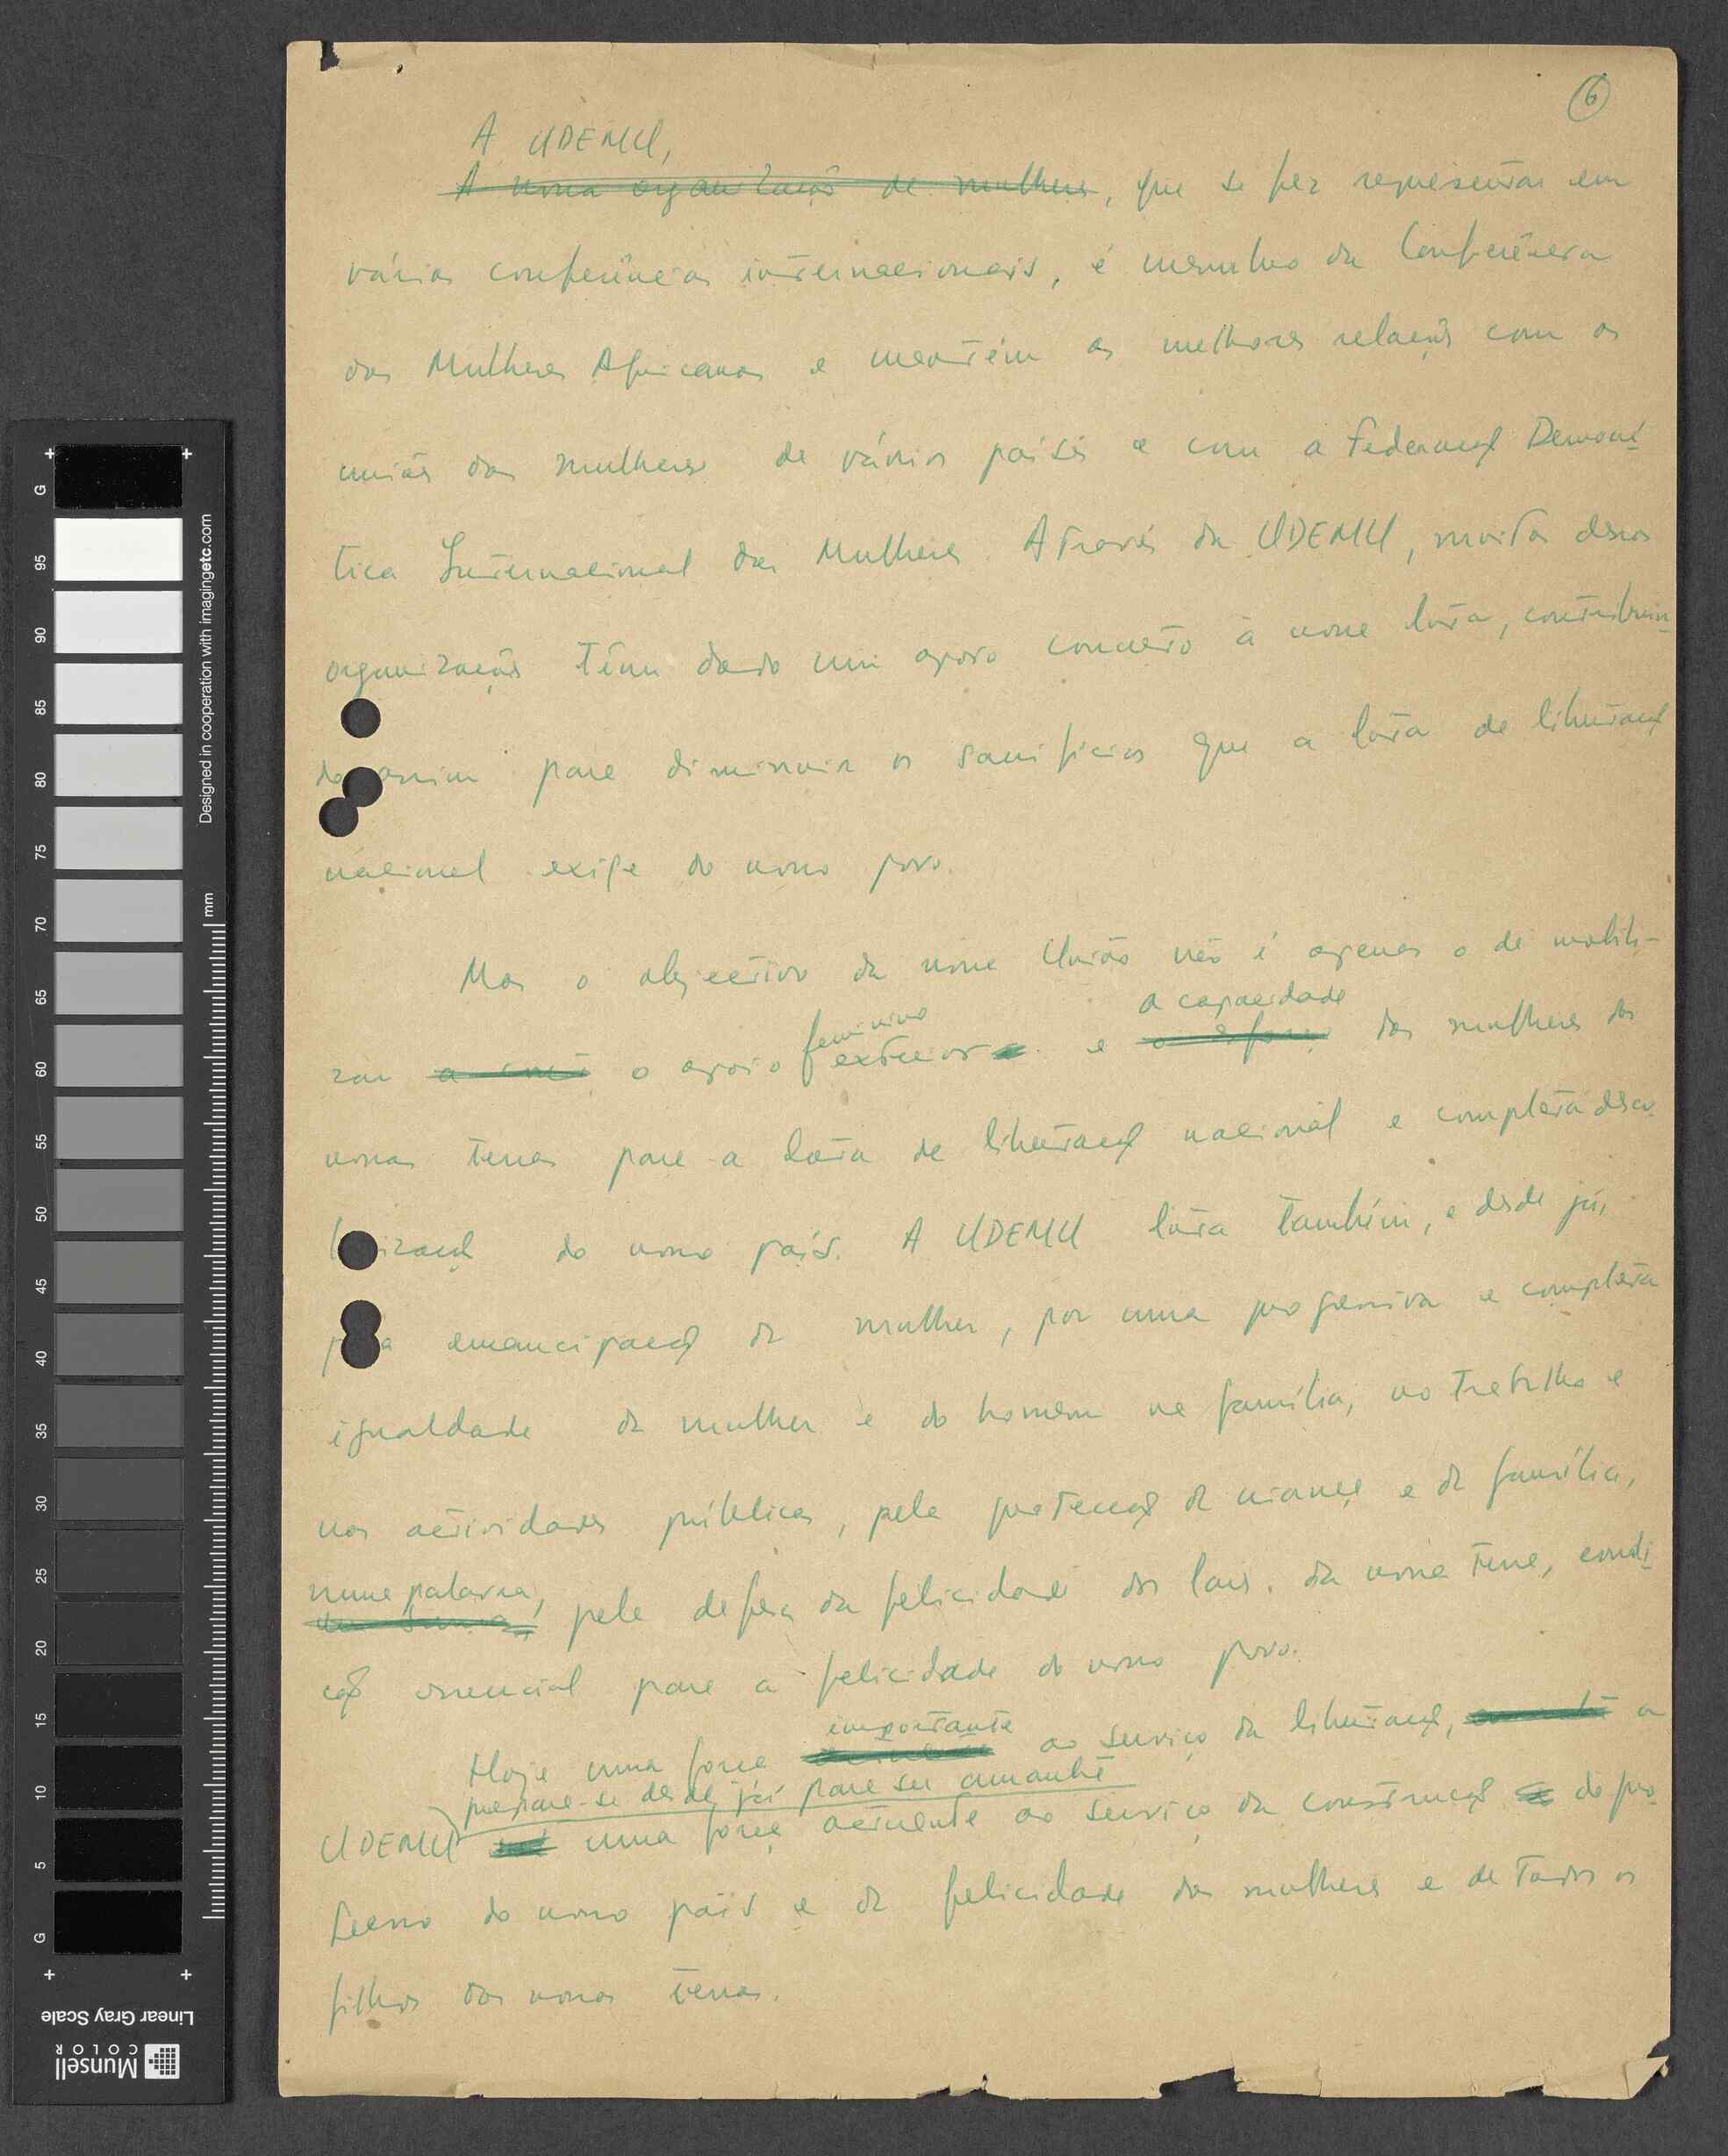 6
A UDEMU,
A nossa organização de mulheres, que se fez representar em
várias conferências internacionais, é membro da Conferência
das Mulheres Africanas e mantém as melhores relações com as
uniões das mulheres de vários países e com a Federação Democrá-
tica Internacional das Mulheres. Através da UDEMU, muitas dessas
organizações têm dado um apoio concreto à nossa luta, contribuin-
do assim para diminuir os sacrifícios que a luta de libertação
nacional exige do nosso povo.
Mas o objectivo da nossa União não é apenas o de mobili-
feminino a capacidade
zar o apoio exterior e o esforço das mulheres das
nossas terras para a luta de libertação nacional e completa desco-
lonização do nosso país. A UDEMU luta também, e desde já,
pela emancipação da mulher, por uma progressiva e completa
igualdade da mulher e do homem na família, no trabalho e
nas actividades públicas, pela protecção da criança e da família,
numa palavra,
em suma, pela defesa da felicidade dos lares da nossa terra, condi-
ção essencial para a felicidade do nosso povo.
importante
Hoje uma força ao serviço da libertação, a
prepara-se desde já para ser amanhã
UDEMU uma força actuante ao serviço da construção do pro-
gresso do nosso país e da felicidade das mulheres e de todos os
filhos das nossas terras.
G
95
90
85
80
75
70
65
60
55
50
45
40
35
30
25
20
15
10
5
G
Designed in cooperation with imagingetc.com
mm
Linear Gray Scale
Munsell
COLOR